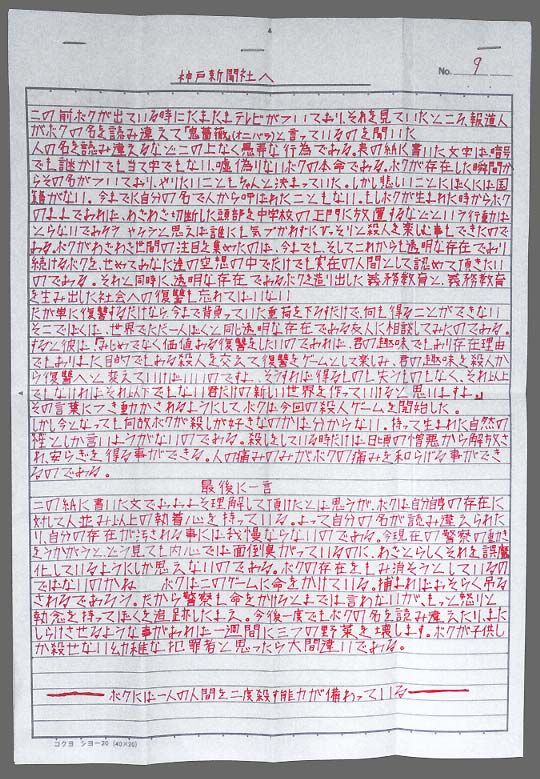 神戸新聞社へ
No. 9
この前ボクが出ている時にたまたまテレビがついており、それを見ていたところ、報道人
がボクの名を読み違えて「鬼薔薇」(オニバラ)と言っているのを聞いた
人の名を読み違えるなどこの上なく愚弄な行為である。表の紙に書いた文字は、暗号
でも謎かけでも当て字でもない、嘘偽りないボクの本命である。ボクが存在した瞬間か
らその名がついており、やりたいこともちゃんと決まっていた。しかし悲しいことにぼくには国
籍がない。今までに自分の名で人から呼ばれたこともない。もしボクが生まれた時からボク
のままであれば、わざわざ切断した頭部を中学校の正門に放置するなどという行動は
とらないであろう やろうと思えば誰にも気づかれずにひっそりと殺人を楽しむ事もできたので
ある。ボクがわざわざ世間の注目を集めたのは、今までも、そしてこれからも透明な存在であり
続けるボクを、せめてあなた達の空想の中でだけでも実在の人間として認めて頂きたい
のである。それと同時に、透明な存在であるボクを造り出した義務教育と、義務教育
を生み出した社会への復讐も忘れてはいない
だが単に復讐するだけなら、今まで背負っていた重荷を下ろすだけで、何も得ることができない
そこでぼくは、世界でただ一人ぼくと同じ透明な存在である友人に相談してみたのである。
すると彼は、「みじめでなく価値ある復讐をしたいのであれば、君の趣味でもあり存在理由
でもありまた目的でもある殺人を交えて復讐をゲームとして楽しみ、君の趣味を殺人か
ら復讐へと変えていけばいいのですよ、そうすれば得るものも失うものもなく、それ以上
でもなければそれ以下でもない君だけの新しい世界を作っていけると思いますよ。」
その言葉につき動かされるようにしてボクは今回の殺人ゲームを開始した。
しかし今となっても何故ボクが殺しが好きなのかは分からない。持って生まれた自然の
性としか言いようがないのである。殺しをしている時だけは日頃の憎悪から解放さ
れ、安らぎを得る事ができる。人の痛みのみが、ボクの痛みを和らげる事ができ
るのである。
最後に一言
この紙に書いた文でおおよそ理解して頂けたとは思うが、ボクは自分自身の存在に
対して人並み以上の執着心を持っている。よって自分の名が読み違えられた
り、自分の存在が汚される事には我慢ならないのである。今現在の警察の動き
をうかがうと、どう見ても内心では面倒臭がっているのに、わざとらしくそれを誤魔
化しているようにしか思えないのである。ボクの存在をもみ消そうとしているの
ではないのかね ボクはこのゲームに命をかけている。捕まればおそらく吊る
されるであろう。だから警察も命をかけろとまでは言わないが、もっと怒りと
執念を持ってぼくを追跡したまえ。今後一度でもボクの名を読み違えたり、また
しらけさせるような事があれば一週間に三つの野菜を壊します。ボクが子供し
か殺せない幼稚な犯罪者と思ったら大間違いである。
ボクには一人の人間を二度殺す能力が備わっている
コクヨ シヨー20 (40×20)